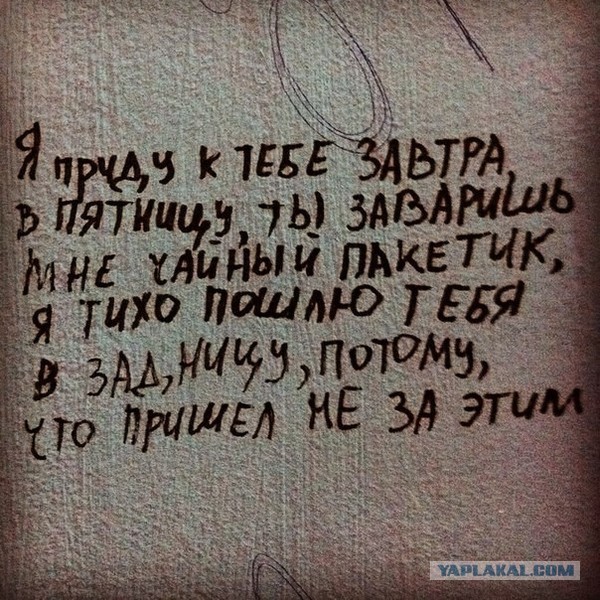 Я приду к тебе завтра,
в пятницу, ты заваришь
мне чайный пакетик,
я тихо пошлю тебя
в зад,ницу, потому,
что пришел не за этим
YAPLAKAL.COM